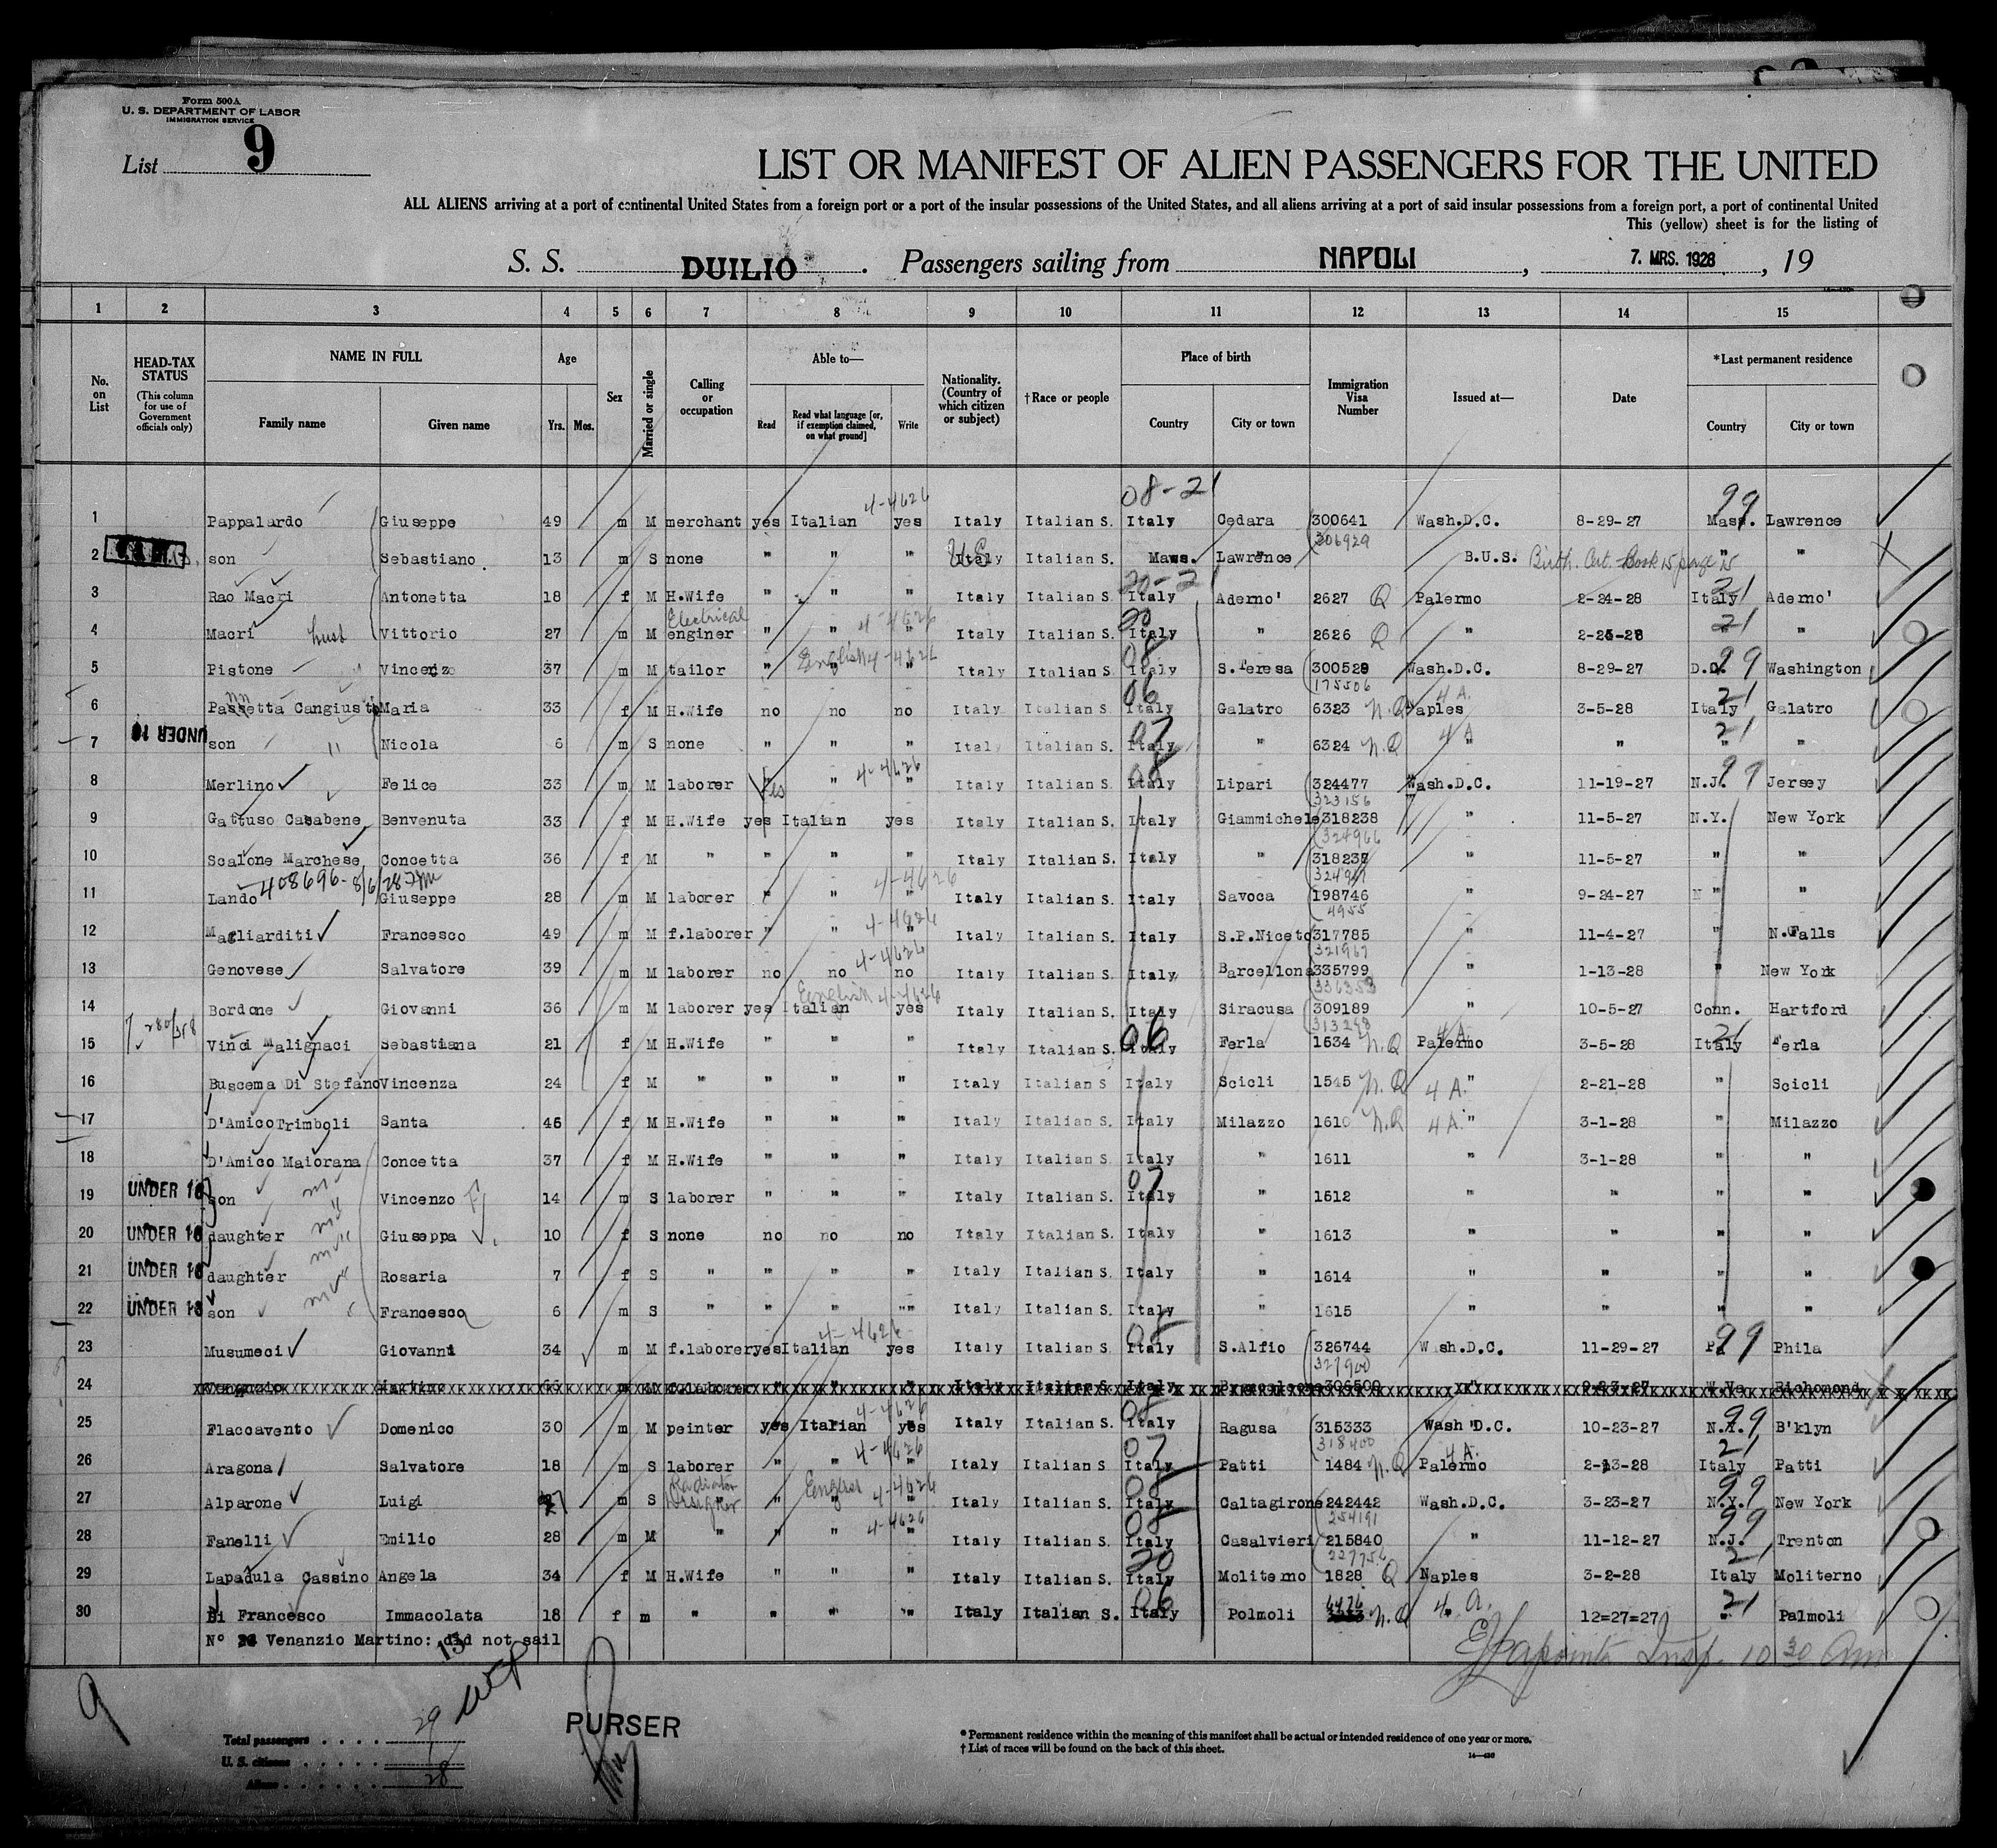 Form 500A
U. S. DEPARTMENT OF LABOR
IMMIGRATION SERVICE
List 9
LIST OR MANIFEST OF ALIEN PASSENGERS FOR THE UNITED
ALL ALIENS arriving at a port of continental United States from a foreign port or a port of the insular possessions of the United States, and all aliens arriving at a port of said insular possessions from a foreign port, a port of continental United
This (yellow) sheet is for the listing of
S. S. DUILIO . Passengers sailing from NAPOLI , 7. MRS. 1928 , 19
1 2 3 4 5 6 7 8 9 10 11 12 13 14 15
No. on List
HEAD-TAX STATUS
(This column for use of Government officials only)
NAME IN FULL
Family name Given name
Age
Yrs. Mos.
Sex
Married or single
Calling or occupation
Able to—
Read
Read what language [or, if exemption claimed, on what ground]
Write
Nationality. (Country of which citizen or subject)
†Race or people
Place of birth
Country City or town
Immigration Visa Number
Issued at—
Date
*Last permanent residence
Country City or town
08-21 4-4626 99
1 Pappalardo Giuseppe 49 m M merchant yes Italian yes Italy Italian S. Italy Cedara 300641 Wash.D.C. 8-29-27 Mass. Lawrence
306929
2 son Sebastiano 13 m S none " " " Italy US Italian S. Mass. Lawrence B.U.S. Birth. Cert. Book 15 page 15 " "
20-21 21
3 Rao Macri Antonetta 18 f M H.Wife " " " Italy Italian S. Italy Aderno' 2627 Q Palermo 2-24-28 Italy Aderno'
Electrical 4-4626 20 21
4 Macri husb Vittorio 27 m M enginer " " " Italy Italian S. Italy " 2626 Q " 2-25-28 " "
English 4-4626 08 99
5 Pistone Vincenzo 37 m M tailor " " " Italy Italian S. Italy S.Teresa 300529 Wash.D.C. 8-29-27 D.C. Washington
175506
06 4 A. 21
6 Passetta Cangiusti Maria 33 f M H.Wife no no no Italy Italian S. Italy Galatro 6323 N.Q Naples 3-5-28 Italy Galatro
UNDER 16 07 4 A 21
7 son " Nicola 6 m S none " " " Italy Italian S. Italy " 6324 N.Q " " " "
4-4626 08 99
8 Merlino Felice 33 m M laborer Yes " " Italy Italian S. Italy Lipari 324477 Wash.D.C. 11-19-27 N.J. Jersey
323156
9 Gattuso Casabene Benvenuta 33 f M H.Wife yes Italian yes Italy Italian S. Italy Giammichele 318238 " 11-5-27 N.Y. New York
324966
10 Scalone Marchese Concetta 36 f M " " " " Italy Italian S. Italy " 318237 " 11-5-27 " "
408696-8/6/28 4-4626
11 Lando Giuseppe 28 m M laborer " " " Italy Italian S. Italy Savoca 198746 " 9-24-27 " "
4955
4-4626
12 Magliarditi Francesco 49 m M f.laborer " " " Italy Italian S. Italy S.P.Niceto 317785 " 11-4-27 " N.Falls
321967
4-4626
13 Genovese Salvatore 39 m M laborer no no no Italy Italian S. Italy Barcellona 335799 " 1-13-28 " New York
336353
English 4-4626
14 Bordone Giovanni 36 m M laborer yes Italian yes Italy Italian S. Italy Siracusa 309189 " 10-5-27 Conn. Hartford
313298
06 4 A. 21
15 Vinci Malignaci Sebastiana 21 f M H.Wife " " " Italy Italian S. Italy Ferla 1534 N.Q Palermo 3-5-28 Italy Ferla
16 Buscema Di Stefano Vincenza 24 f M " " " " Italy Italian S Italy Scicli 1545 N.Q 4 A. " 2-21-28 " Scicli
17 D'Amico Trimboli Santa 46 f M H.Wife " " " Italy Italian S. Italy Milazzo 1610 N.Q 4 A. " 3-1-28 " Milazzo
18 D'Amico Maiorana Concetta 37 f M H.Wife " " " Italy Italian S. Italy " 1611 " 3-1-28 " "
07
19 UNDER 16 son Vincenzo 14 m S laborer " " " Italy Italian S. Italy " 1612 " " " "
20 UNDER 16 daughter Giuseppa 10 f S none no no no Italy Italian S. Italy " 1613 " " " "
21 UNDER 16 daughter Rosaria 7 f S " " " " Italy Italian S. Italy " 1614 " " " "
22 UNDER 16 son Francesco 6 m S " " " "" Italy Italian S. Italy " 1615 " " " "
4-4626 08 99
23 Musumeci Giovanni 34 m M f.laborer yes Italian yes Italy Italian S. Italy S.Alfio 326744 Wash.D.C. 11-29-27 Pa Phila
327900
24 Venanzio Martino m M f.laborer " " " Italy Italian S. Italy W.Va Richmond
4-4626 08 99
25 Flaccavento Domenico 30 m M peinter yes Italian yes Italy Italian S. Italy Ragusa 315333 Wash D.C. 10-23-27 N.Y. B'klyn
318400
4-4626 07 4 A. 21
26 Aragona Salvatore 18 m S laborer " " " Italy Italian S. Italy Patti 1484 N.Q Palermo 2-13-28 Italy Patti
Radiator English 4-4626 08 99
27 Alparone Luigi 27 m S " " " Italy Italian S. Italy Caltagirone 242442 Wash.D.C. 3-23-27 N.Y. New York
254191
4-4626 08 99
28 Fanelli Emilio 28 m M " " " " Italy Italian S. Italy Casalvieri 215840 " 11-12-27 N.J. Trenton
227756
20 21
29 Lapadula Cassino Angela 34 f M H.Wife " " " Italy Italian S. Italy Moliterno 1828 Q Naples 3-2-28 Italy Moliterno
06 6476 4 A. 21
30 Di Francesco Immacolata 18 f m " " " "" Italy Italian S. Italy Polmoli N.Q " 12=27=27 " Palmoli
N° 24 Venanzio Martino: did not sail
13
Insp. 10 30 Am
9
PURSER
Total passengers . . . . 29
U. S. citizens . . . . . 1
Aliens . . . . . . 28
* Permanent residence within the meaning of this manifest shall be actual or intended residence of one year or more.
† List of races will be found on the back of this sheet.
14—430